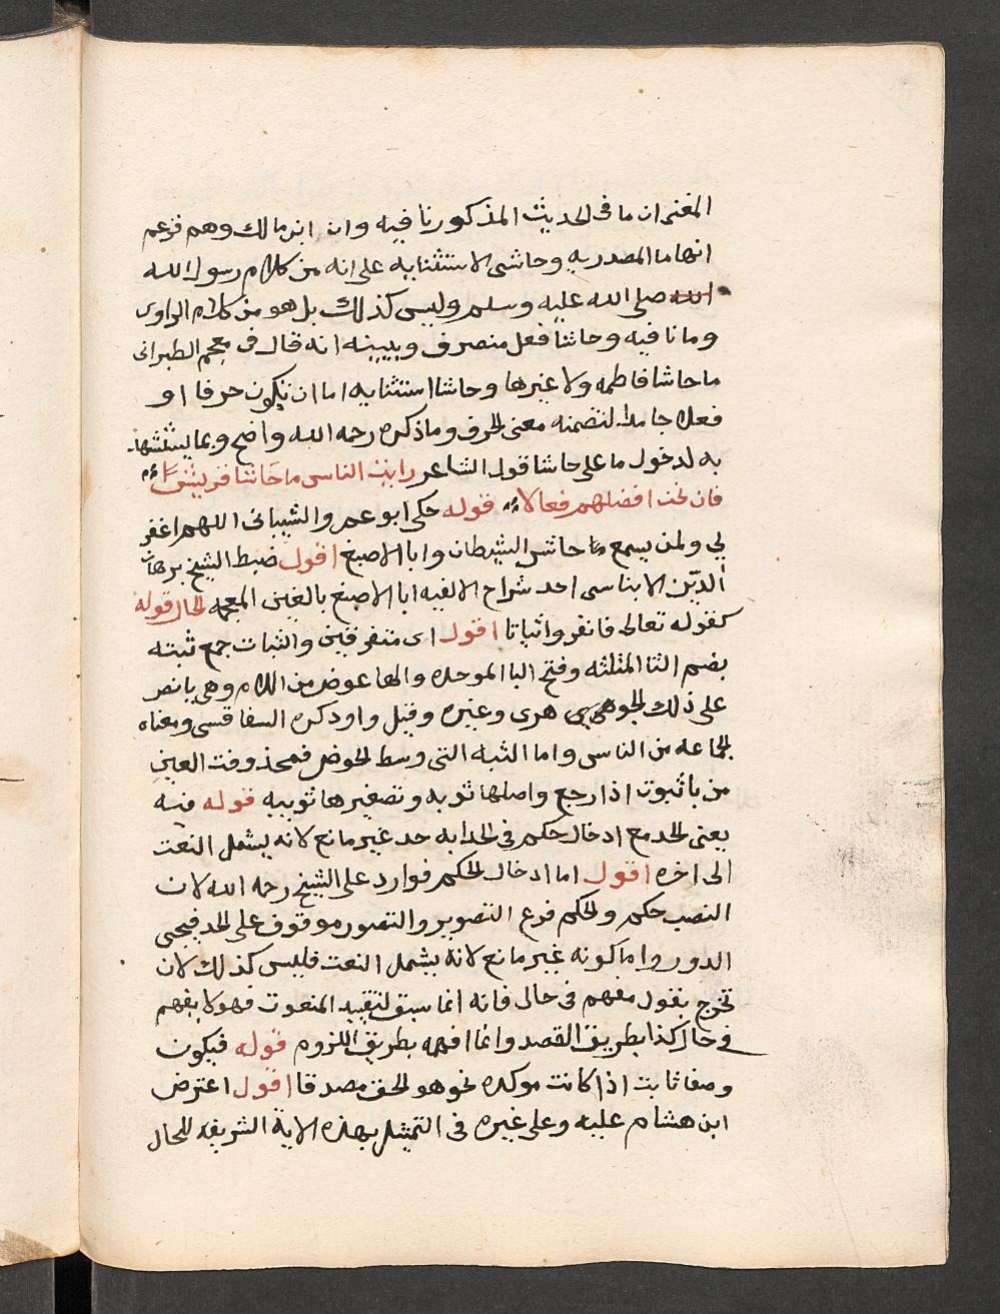 المغنى ان ما فى الحديث المذكور نافيه وان ابن مالك وهم فزعم
انها ما المصدريه وحاشى الاستثنايه على انه من كلام رسول الله
الله صلى الله عليه وسلم وليس كذلك بل هو من كلام الراوى
وما نافيه وحاشا فعل متصرف ويبينه انه قال فى معجم الطبرانى
ما حاشا فاطمه ولا غيرها وحاشا استثنايه اما ان تكون حرفا او
فعلا جامدا لتضمنه معنى الحرف وما ذكره رحمه الله واضح ومما يستشهد
به لدخول ما على حاشا قول الشاعر رايت الناس ما حاشا قريشا
فان نحن افضلهم فعالا قوله حكى ابو عمرو الشيبانى اللهم اغفر
لى ولمن يسمع ما حاشى الشيطان وابا الاصبغ اقول ضبط الشيخ برهان
الدين الابناسى احد شراح الالفيه ابا الاصبغ بالغين المعجمه الحال قوله
كقوله تعالى فانفروا ثباتا اقول اى متفرقين والثبات جمع ثبته
بضم الثا المثلثه وفتح البا الموحده والها عوض من اللام وهى يا نص
على ذلك الجوهرى وغيره وقيل واو ذكره السفاقسى ومعناه
الجماعه من الناس واما الثبه التى وسط الحوض فمحذوفت العين
من باثبوت اذا رجع واصلها ثوبه وتصغيرها ثويبه قوله فيه
يعنى الحد مع ادخال حكم فى الحد ابه حد غير مانع لانه يشمل النعت
الى اخره اقول اما ادخال الحكم فوارد على الشيخ رحمه الله لان
النصب حكم والحكم فرع التصوير والتصور موقوف على الحد فيجى
الدور واما كونه غير مانع لانه يشمل النعت فليس كذلك لان
تخرج بقول مفهم فى حال فانه انما سبق لتقييد المنعوت فهو لا يفهم
فى حال كذا بطريق القصد وانما افهمه بطريق اللزوم قوله فيكون
وصفا ثابت اذا كانت موكده نحو هو الحق مصدقا اقول اعترض
ابن هشام عليه وعلى غيره فى التمثيل بهذه الاية الشريفه للحال